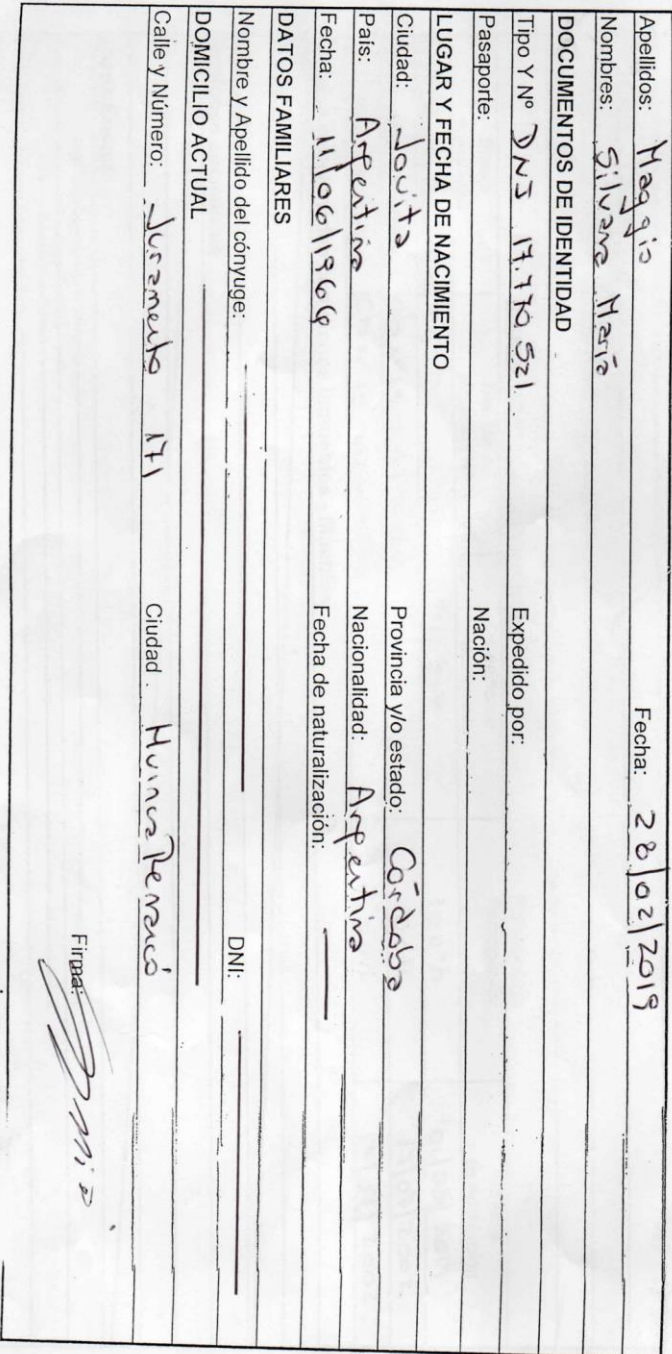 Apellidos: Maggio Fecha: 28/02/2019
Nombres: Silvana María
DOCUMENTOS DE IDENTIDAD
Tipo Y Nº DNI 17.770.521 Expedido por:
Pasaporte: Nación:
LUGAR Y FECHA DE NACIMIENTO
Ciudad: Jovita Provincia y/o estado: Córdoba
País: Argentina Nacionalidad: Argentina
Fecha: 11/06/1966 Fecha de naturalización:
DATOS FAMILIARES
Nombre y Apellido del cónyuge: DNI:
DOMICILIO ACTUAL
Calle y Número: Juramento 171 Ciudad Huinca Renancó
Firma: